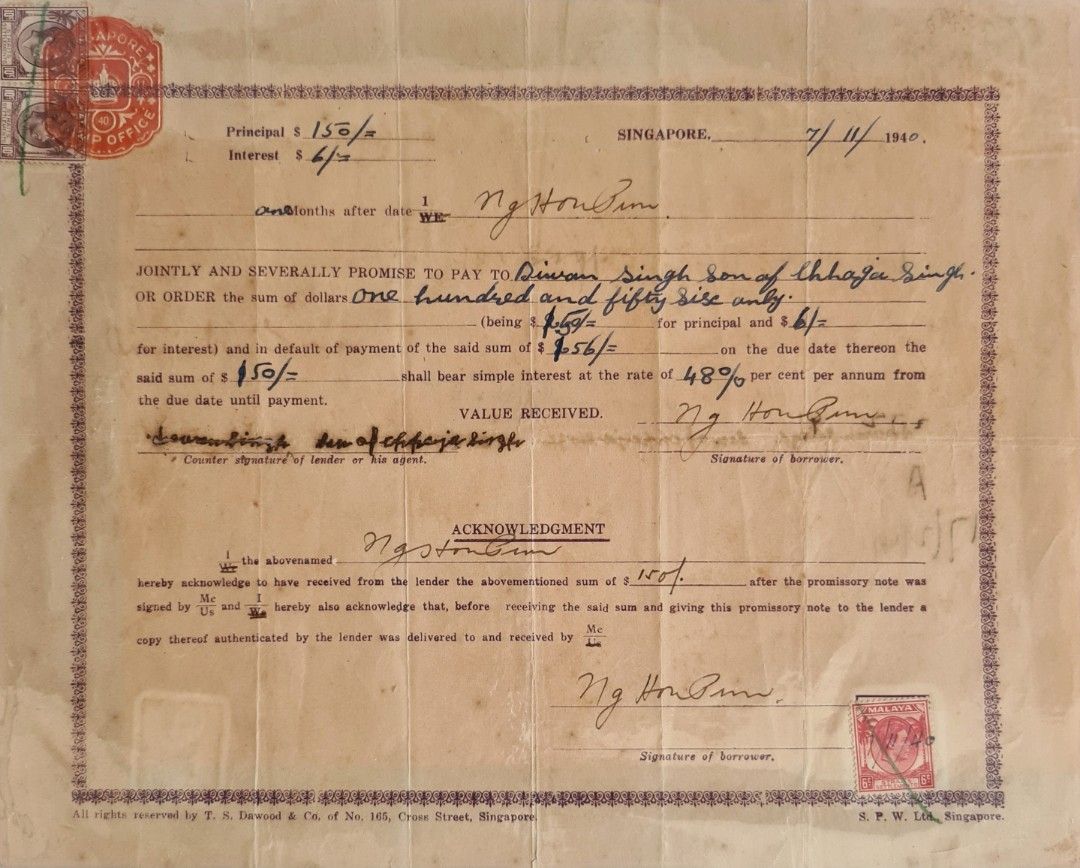 SINGAPORE
40
STAMP OFFICE
Principal $ 150/=
SINGAPORE, 7/11/1940.
Interest $ 6/=
one Months after date I WE Ng Hon Pun
JOINTLY AND SEVERALLY PROMISE TO PAY TO Diwan Singh Son of Chhaja Singh.
OR ORDER the sum of dollars One hundred and fifty Six only.
(being $ 150/= for principal and $ 6/=
for interest) and in default of payment of the said sum of $ 156/= on the due date thereon the
said sum of $ 150/= shall bear simple interest at the rate of 48% per cent per annum from
the due date until payment.
VALUE RECEIVED. Ng Hon Pun
Singh Son of Singh
Counter signature of lender or his agent. Signature of borrower.
A
ACKNOWLEDGMENT
I We the abovenamed Ng Hon Pun
hereby acknowledge to have received from the lender the abovementioned sum of $ 150/. after the promissory note was
signed by Me Us and I We hereby also acknowledge that, before receiving the said sum and giving this promissory note to the lender a
copy thereof authenticated by the lender was delivered to and received by Me Us
Ng Hon Pun.
Signature of borrower.
MALAYA
7/11/40
6c 6c
All rights reserved by T. S. Dawood & Co. of No. 165, Cross Street, Singapore. S. P. W. Ltd., Singapore.